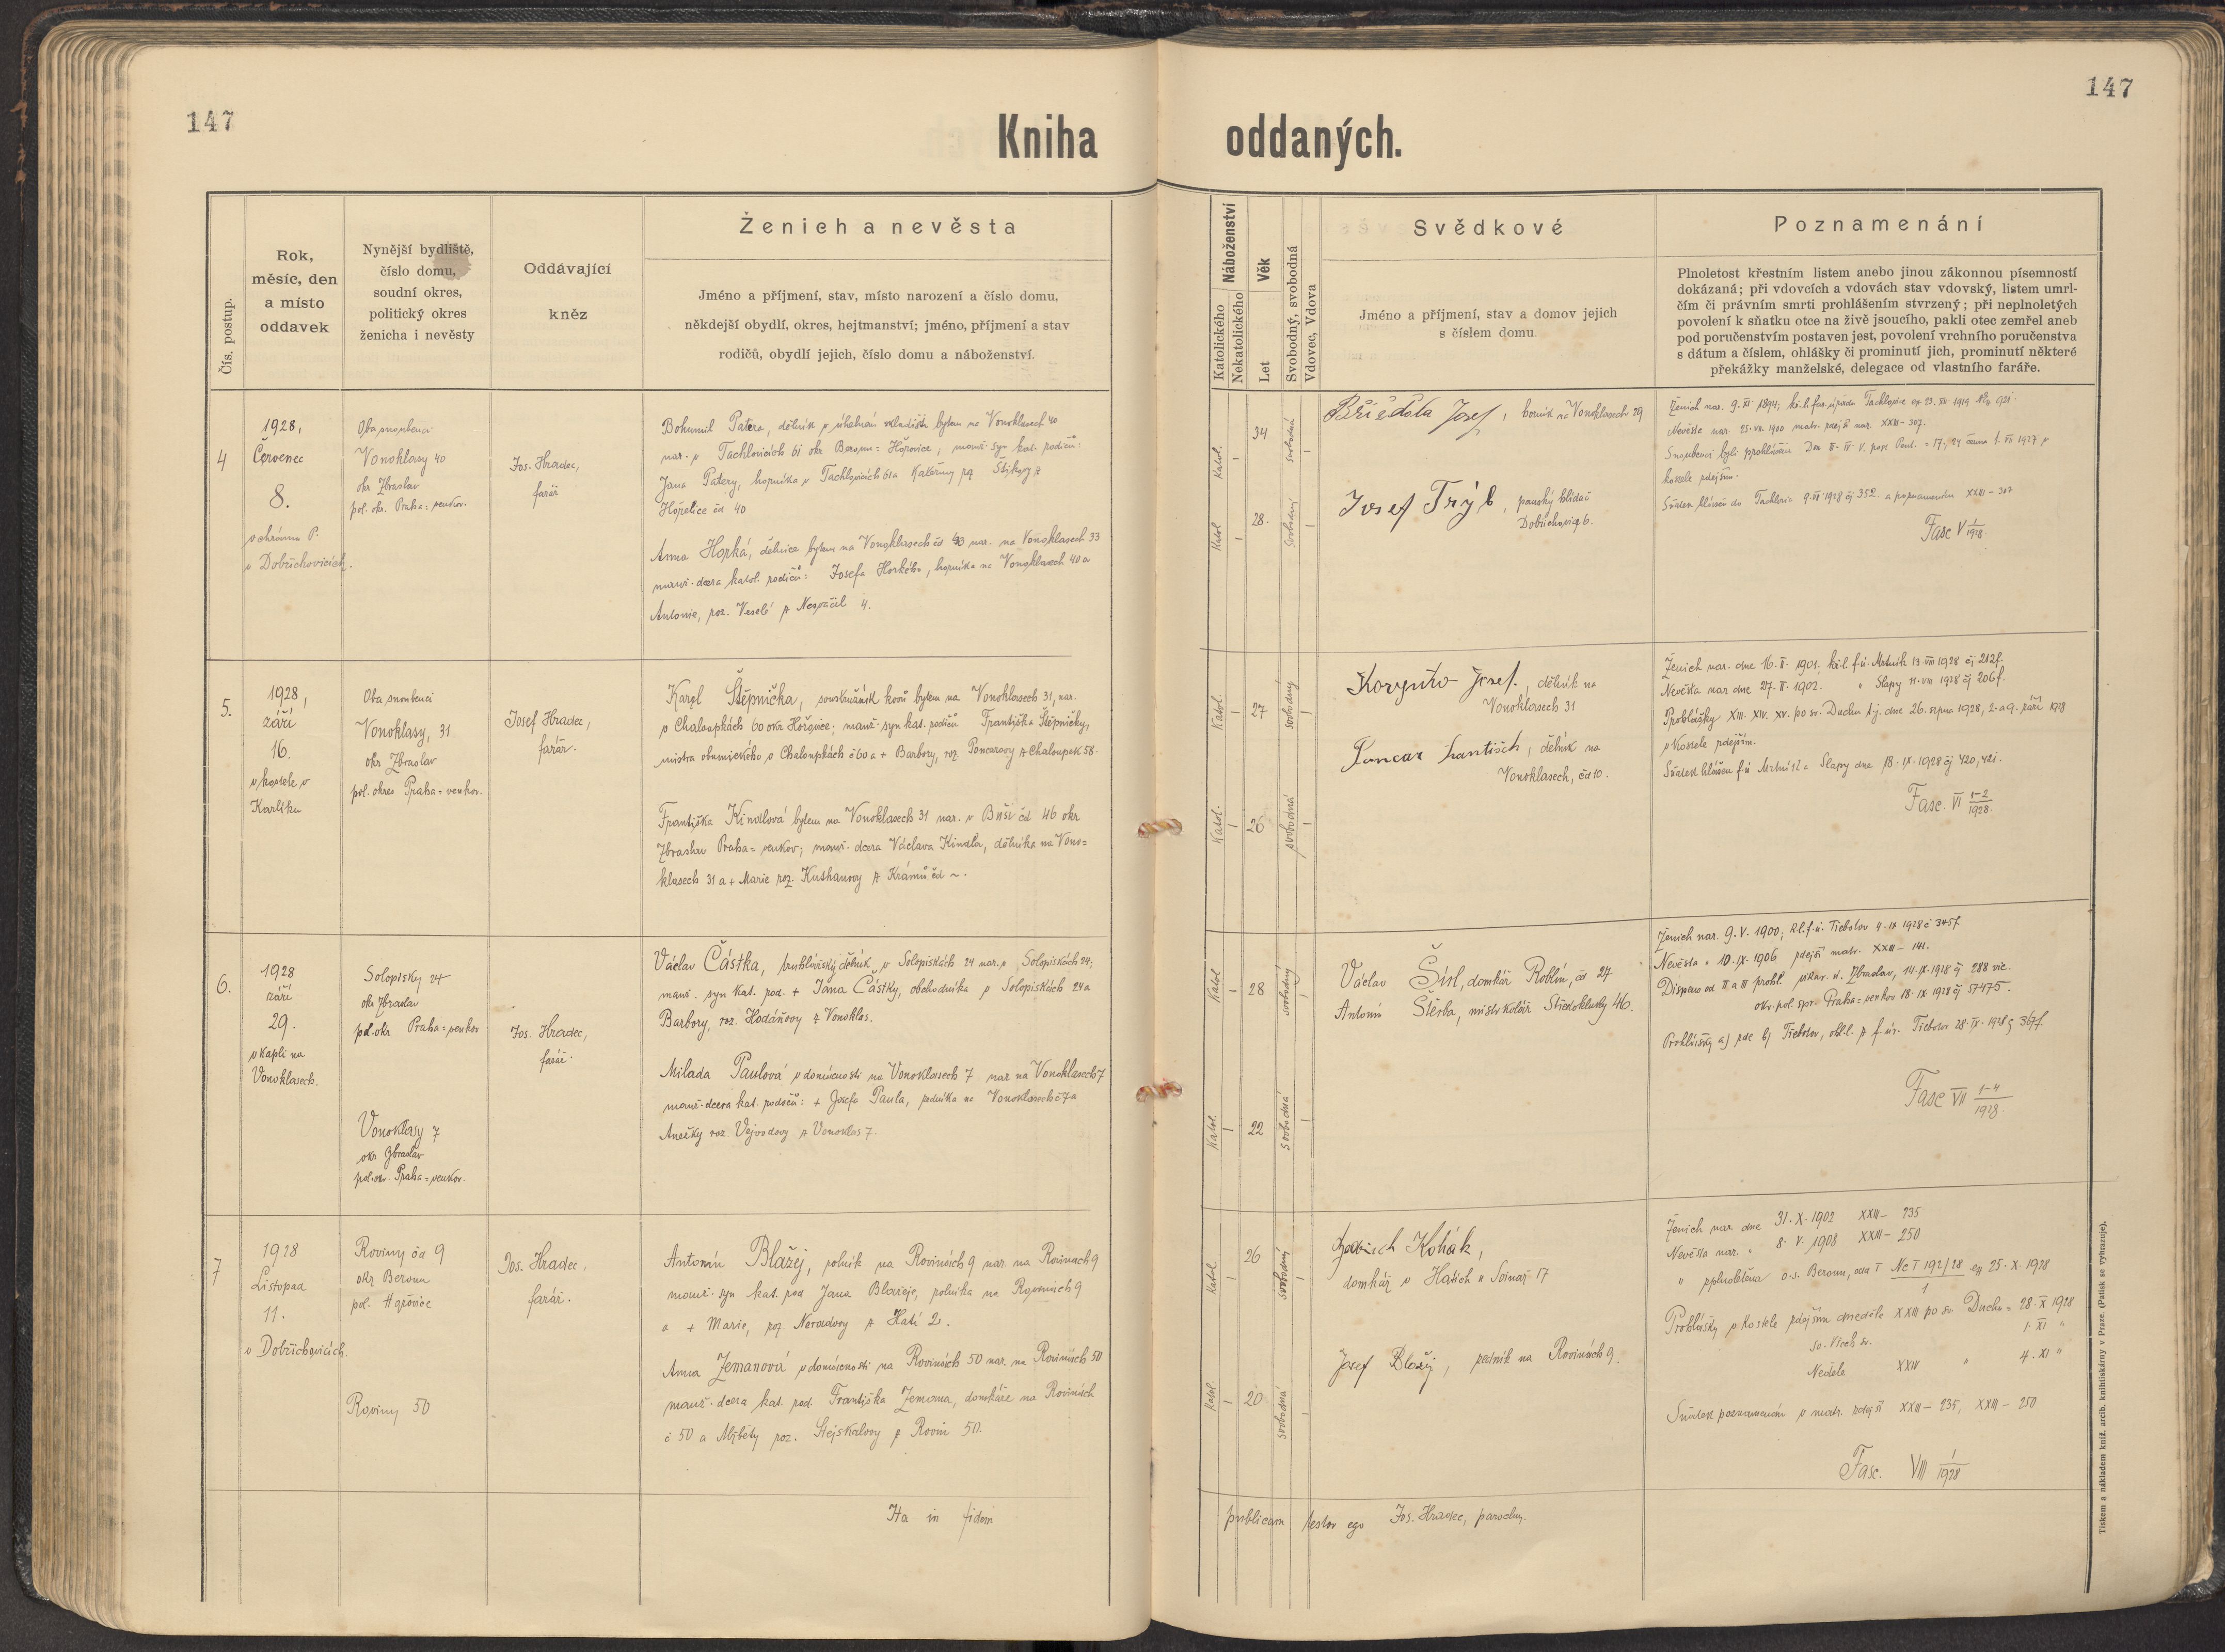 147
147
Kniha oddaných.
Čís. postup.
Rok,
měsíc, den
a místo
oddavek
Nynější bydliště,
číslo domu,
soudní okres,
politický okres
ženicha i nevěsty
Oddávající
kněz
Ženich a nevěsta
Jméno a příjmení, stav, místo narození a číslo domu,
někdejší obydlí, okres, hejtmanství; jméno, příjmení a stav
rodičů, obydlí jejich, číslo domu a náboženství.
Náboženství
Katolického
Nekatolického
Věk
Let
Svobodný, svobodná
Vdovec, Vdova
Svědkové
Jméno a příjmení, stav a domov jejich
s číslem domu.
Poznamenání
Plnoletost křestním listem anebo jinou zákonnou písemností
dokázaná; při vdovcích a vdovách stav vdovský, listem umrl-
čím či právním smrti prohlášením stvrzený; při neplnoletých
povolení k sňatku otce na živě jsoucího, pakli otec zemřel aneb
pod poručenstvím postaven jest, povolení vrchního poručenstva
s dátum a číslem, ohlášky či prominutí jich, prominutí některé
překážky manželské, delegace od vlastního faráře.
4
1928,
Červenec
8.
v chrámu P.
v Dobřichovicích.
Oba snoubenci
Vonoklasy 40
okr Zbraslav
pol. okr. Praha=venkov.
Jos. Hradec,
farář
Bohumil Patera, dělník v skladišti bytem na Vonoklasech 40
nar. v Tachlovicích 61 okr Beroun=Hořovice, manž. syn kat. rodičů:
Jana Patery, horníka v Tachlovicích 61 a Kateřiny
Hořelice čd 40
Anna Horká, dělnice bytem na Vonoklasech čd nar. na Vonoklasech 33
manž. dcera katol. rodičů: Josefa Horkého, horníka na Vonoklasech 40 a
Antonie, roz. Veselé z 4.
Katol.
34
svobodný
Katol
28.
Josef, horník na Vonoklasech 29
Josef Trýb, panský hlídač
Dobřichovice 6.
Ženich nar. 9. XI 1894; kř. l. far. úřadu Tachlovice 23. XII 1919
Nevěsta nar. 25. VII. 1900 matr. zdejší nar. XXIII - 307.
Snoubenci byli prohlášeni 17, 24 června 1. VII 1927 v
kostele zdejším.
Sňatek hlášen do Tachlovic 9. VII 1928 čj 352. a poznamenán XXIII - 307
Fasc V 1/1928
5.
1928,
září
16.
v kostele v
Karlíku
Oba snoubenci
Vonoklasy, 31
okr Zbraslav
pol. okres Praha=venkov.
Josef Hradec,
farář.
Karel Štěpnička, soustružník kovů bytem na Vonoklasech 31, nar.
v Chaloupkách 60 okr Hořovice; manž. syn kat. rodičů Františka Štěpničky,
mistra v Chaloupkách č 60 a + Barbory, roz. Poncarovy z Chaloupek 58.
Františka Kindlová bytem na Vonoklasech 31 nar. v Břši čd 46 okr
Zbraslav Praha=venkov; manž. dcera Václava Kindla, dělníka na Vono=
klasech 31 a + Marie roz. z čd ~.
Katol.
27
svobodný
Katol.
26
svobodná
Josef, dělník na
Vonoklasech 31
Poncar František, dělník na
Vonoklasech, čd 10.
Ženich nar. dne 16. II. 1901. kř. l. f. ú. Mrtník 13. VIII 1928 čj 212 f.
Nevěsta nar dne 27. II. 1902. " Slapy 11. VIII 1928 čj 206 f.
Prohlášky XIII. XIV. XV. po sv. Duchu t.j. dne 26. srpna 1928, 2. a 9. září 1928
v kostele zdejším.
Sňatek hlášen f. ú Mrtník a Slapy dne 18. IX. 1928 čj 420, 421.
Fasc. VI 1-2/1928.
6.
1928
září
29.
v kapli na
Vonoklasech.
Solopisky 24
okr Zbraslav
pol. okr Praha=venkov
Vonoklasy 7
okr Zbraslav
pol. okr. Praha=venkov.
Jos. Hradec,
farář.
Václav Částka, truhlářský dělník v Solopiskách 24 nar. v Solopiskách 24;
manž. syn kat. rod. + Jana Částky, obchodníka v Solopiskách 24 a
Barbory, roz. Hodáňovy z Vonoklas.
Milada Paulová v domácnosti na Vonoklasech 7 nar na Vonoklasech 7
manž. dcera kat. rodičů: + Josefa Paula, rolníka na Vonoklasech č 7 a
Anežky roz. Vejvodovy z Vonoklas 7.
Katol
28
svobodný
Katol.
22
svobodná
Václav Šírl, domkář Roblín, čd 27
Antonín Štěrba, mistr kolář Středokluky 46.
Ženich nar. 9. V. 1900; kř. l. f. ú. Třebotov 4. IX 1928 č 345 f.
Nevěsta " 10. IX. 1906 zdejší matr. XXIII - 141.
Dispens od II a III prohl. vikar. ú. Zbraslav, 14. IX. 1928 čj 288 vic.
okr. pol. spr. Praha=venkov 18. IX 1928 čj 57475.
Prohlášky a) zde b) Třebotov, ohl. l. z f. úř. Třebotov 28. IX. 1928 čj 367 f.
Fasc VII 1-4/1928.
7
1928
Listopad
11.
v Dobřichovicích.
Roviny čd 9
okr Beroun
pol. Hořovice
Roviny 50
Jos. Hradec,
farář.
Antonín Blažej, rolník na Rovinách 9 nar. na Rovinách 9
manž. syn kat. rod Jana Blažeje, rolníka na Rovinách 9
a + Marie, roz Neradovy z Hatí 2.
Anna Zemanová v domácnosti na Rovinách 50 nar. na Rovinách 50
manž. dcera kat. rod. Františka Zemana, domkáře na Rovinách
č 50 a Alžběty roz. Stejskalovy z Rovin 50.
Katol
26
svobodný
Katol.
20
svobodná
Kohák,
domkář v Hatích u Svinař 17
Josef Blažej, rolník na Rovinách 9.
Ženich nar. dne 31. X. 1902 XXIII - 235
Nevěsta nar. " 8. V. 1908 XXIII - 250
" zplnoletěna o.s. Beroun, odd I Nc I 192/28 1 25. X. 1928
Prohlášky v kostele zdejším neděle XXIII po sv. Duchu = 28. X 1928
sv. Všech sv. 1. XI "
Neděle XXIV " 4. XI "
Sňatek poznamenán v matr. zdejší XXIII - 235, XXIII - 250
Fasc. VIII 1/1928
Ita in fidem publicam testor ego Jos. Hradec, parochus.
Tiskem a nákladem kníž. arcib. knihtiskárny v Praze. (Patisk se vyhrazuje).